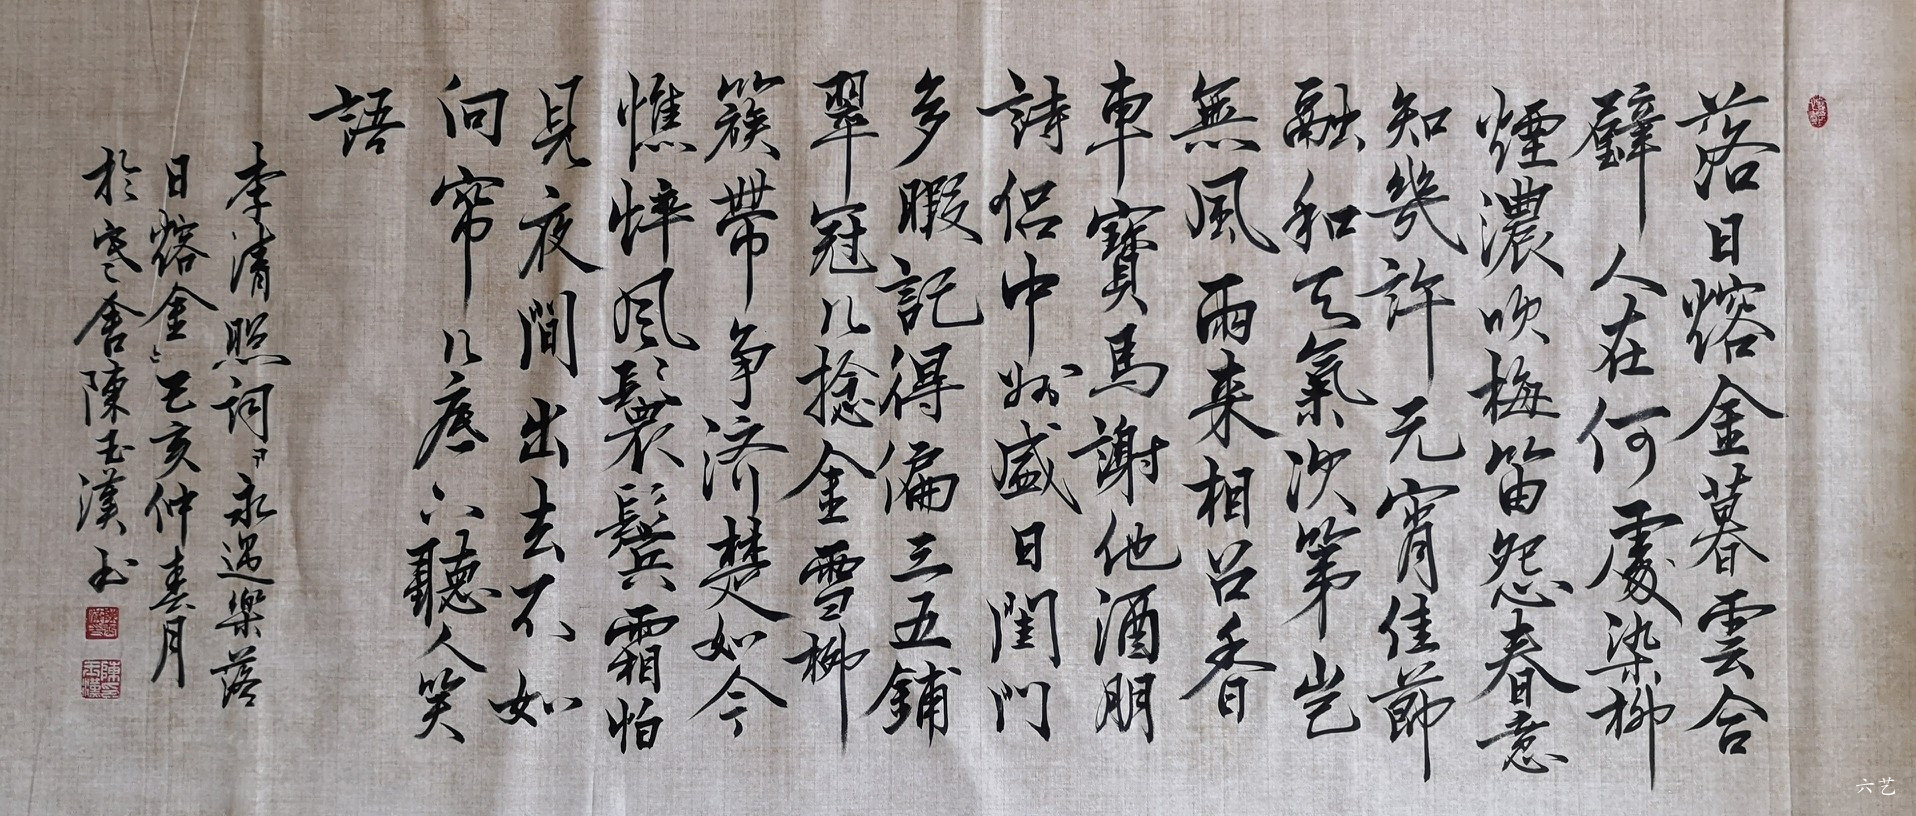 落日熔金暮雲合
璧人在何處染柳
煙濃吹梅笛怨春意
知幾許元宵佳節
融和天氣次第豈
無風雨来相召香
車寶馬謝他酒朋
詩侣中州盛日閨門
多暇記得偏三五鋪
翠冠儿捻金雪柳
簇帶争济楚如今
憔悴风鬟鬢霜怕
見夜間出去不如
向帘儿底下聽人笑
語
李清照詞『永遇樂落
日熔金』己亥仲春月
於寒舍陳玉漢书
陳玉漢
六艺